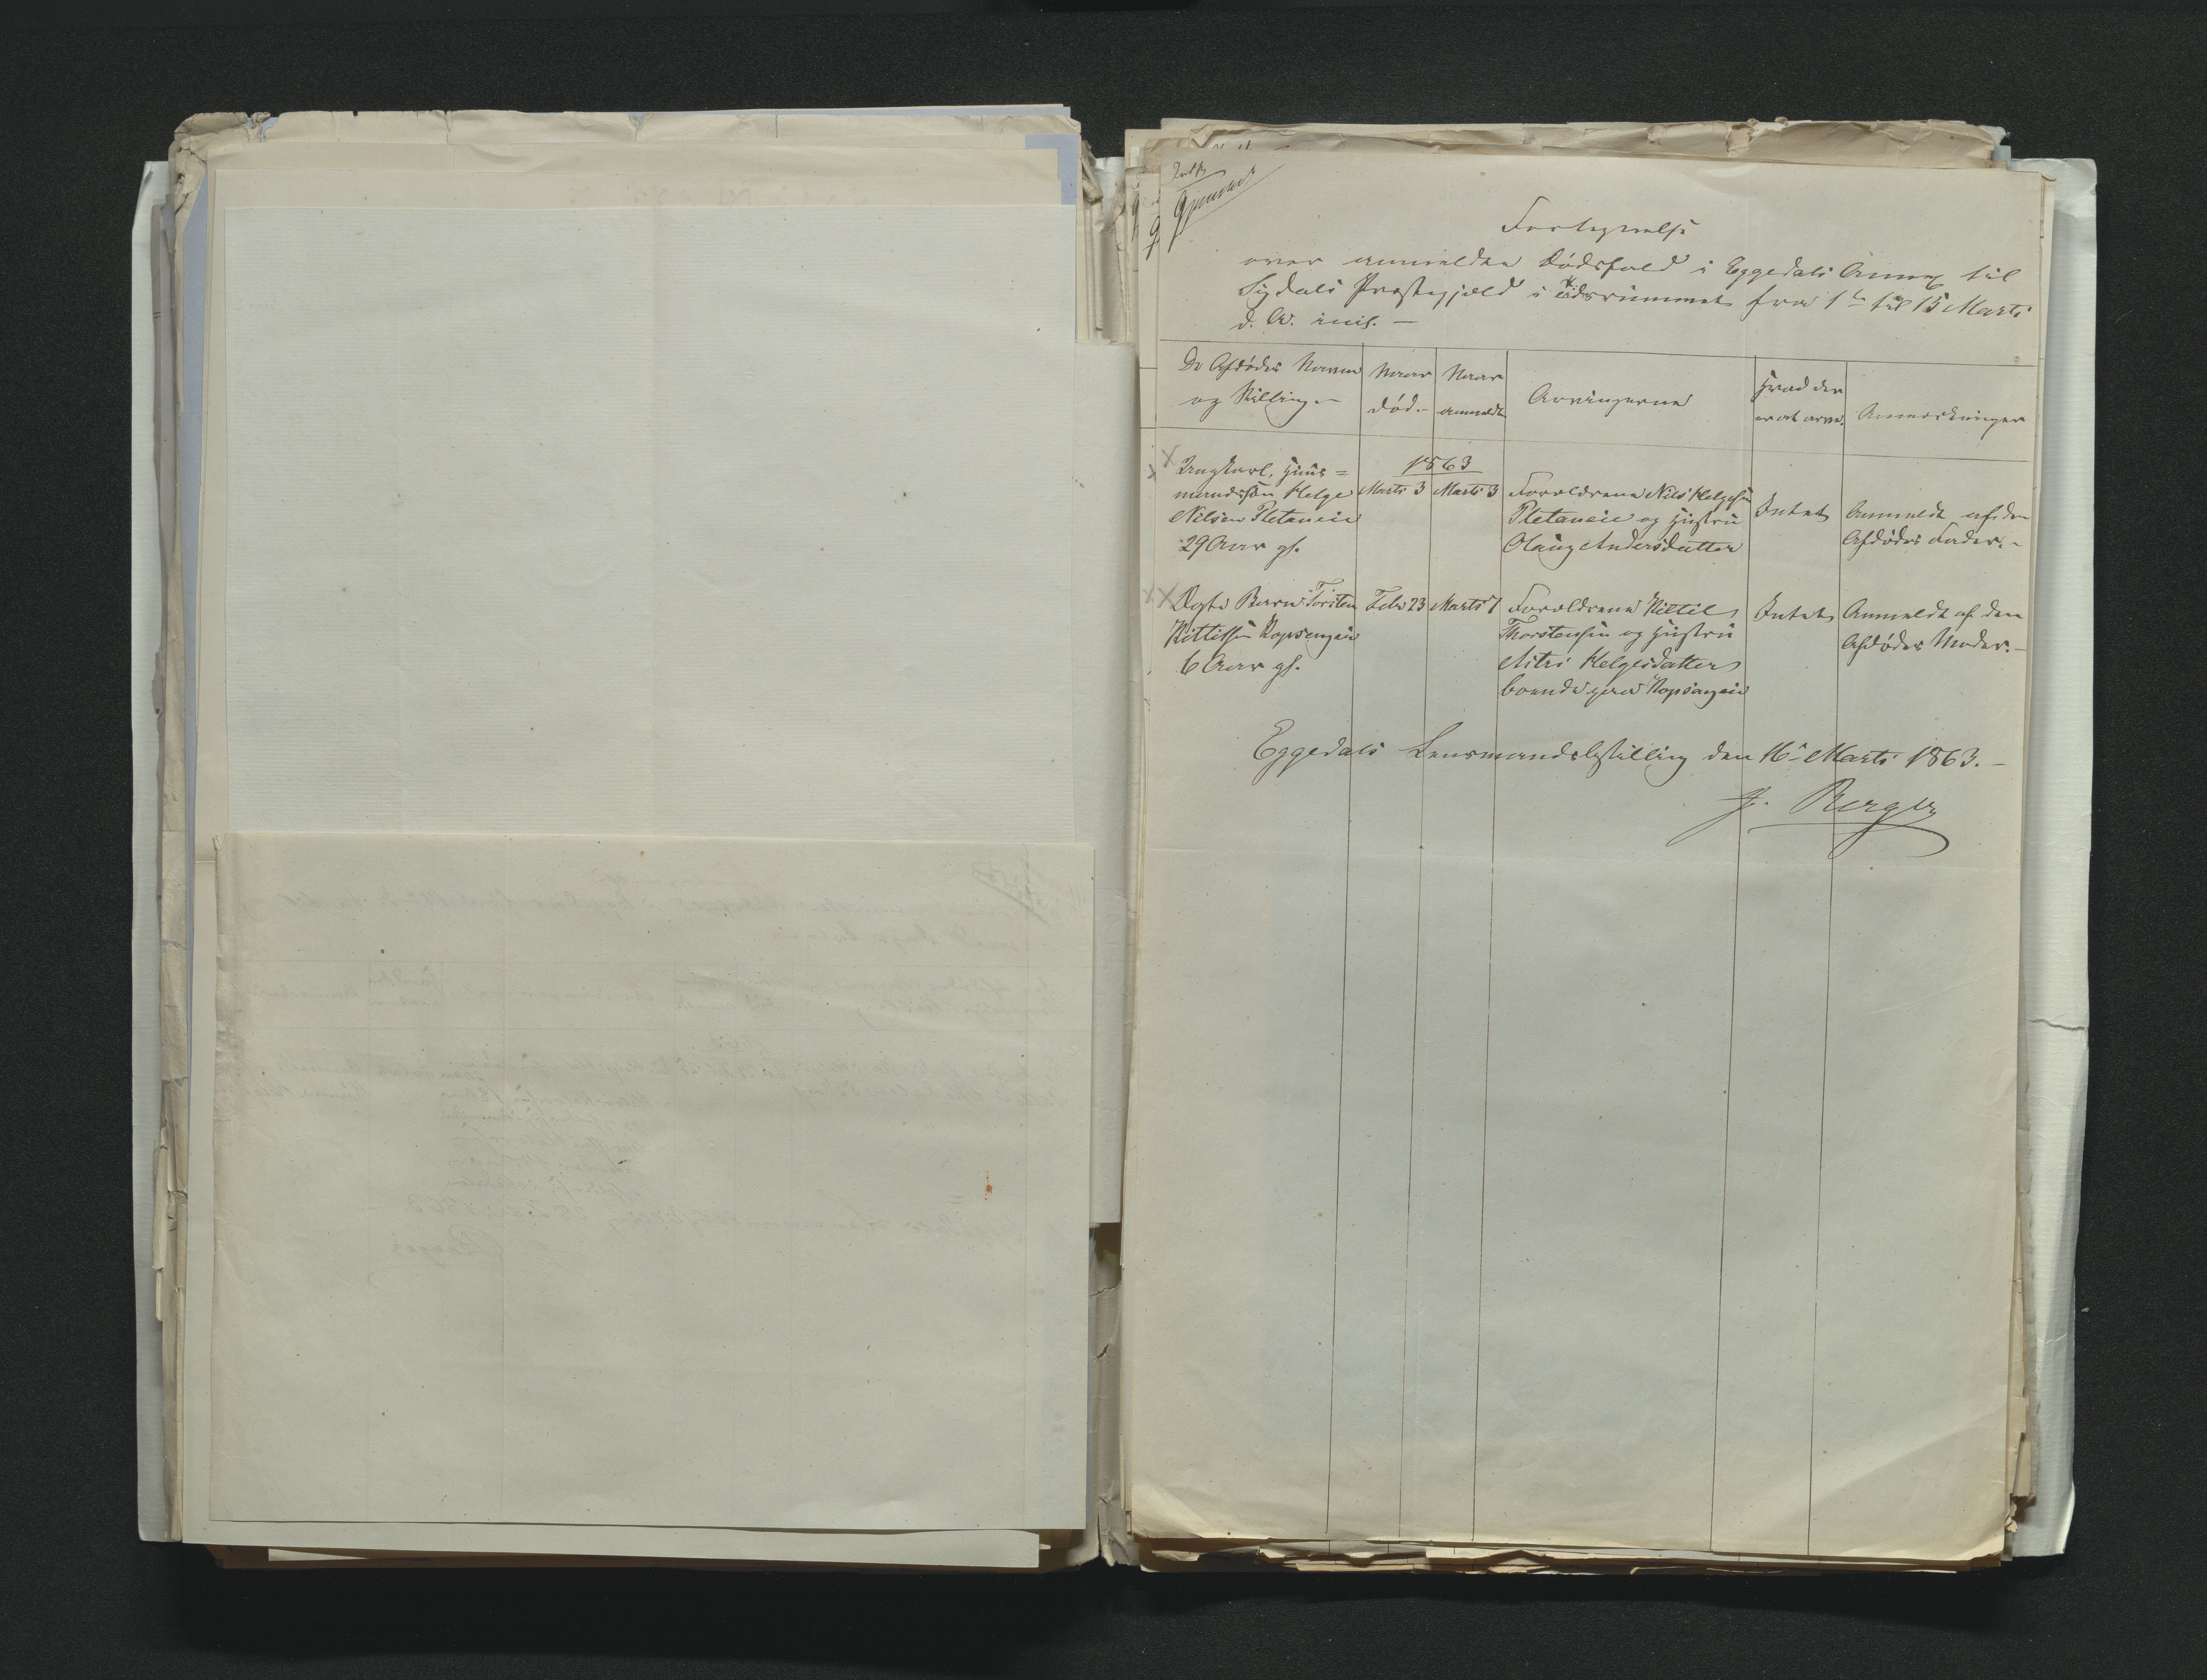 Fortegnelse
over anmeldte Dødsfald i Eggedals Annex til
Sigdals Præstegjæld i Tidsrummet fra 1ste til 15 Marts
d. A. incl. —
De Afdødes Navne og Stilling. —
Naar død. —
Naar anmeldt
Arvingerne
Hvad der er at arve.
Anmærkninger
1863
Ungkarl, Huus=
mandssøn Helge
Nilsen Pletaneie
29 Aar gl.
Marts 3
Marts 3
Forældrene Nils Helgesen
Pletaneie og Hustru
Olaug Andersdatter
Intet
Anmeldt af den
Afdødes Fader. —
Ægte Barn Torsten
Kittilsen Kopsengeie
6 Aar gl.
Febr 23
Marts 7
Forældrene Kittil
Thorstensen og Hustru
Sitri Helgesdatter
boende paa Kopsengeie
Intet
Anmeldt af den
Afdødes Moder. —
Eggedals Lensmandsbestilling den 16de Marts 1863. —
J. Berger